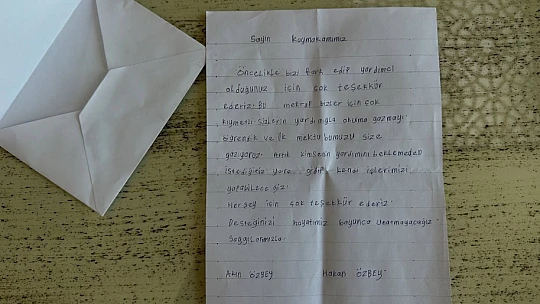 Sayın Kaymakamımız
Öncelikle bizi fark edip yardımcı
olduğunuz için çok teşekkür
ederiz. Bu mektup bizler için çok
kıymetli. Sizlerin yardımıyla okuma yazmayı
öğrendik ve ilk mektubumuzu size
yazıyoruz. Artık kimsenin yardımını beklemeden
istediğimiz yere gidip kendi işlerimizi
yapabileceğiz.
Herşey için çok teşekkür ederiz.
Desteğinizi hayatımız boyunca unutmayacağız.
Saygılarımızla.
Akın ÖZBEY Hakan ÖZBEY